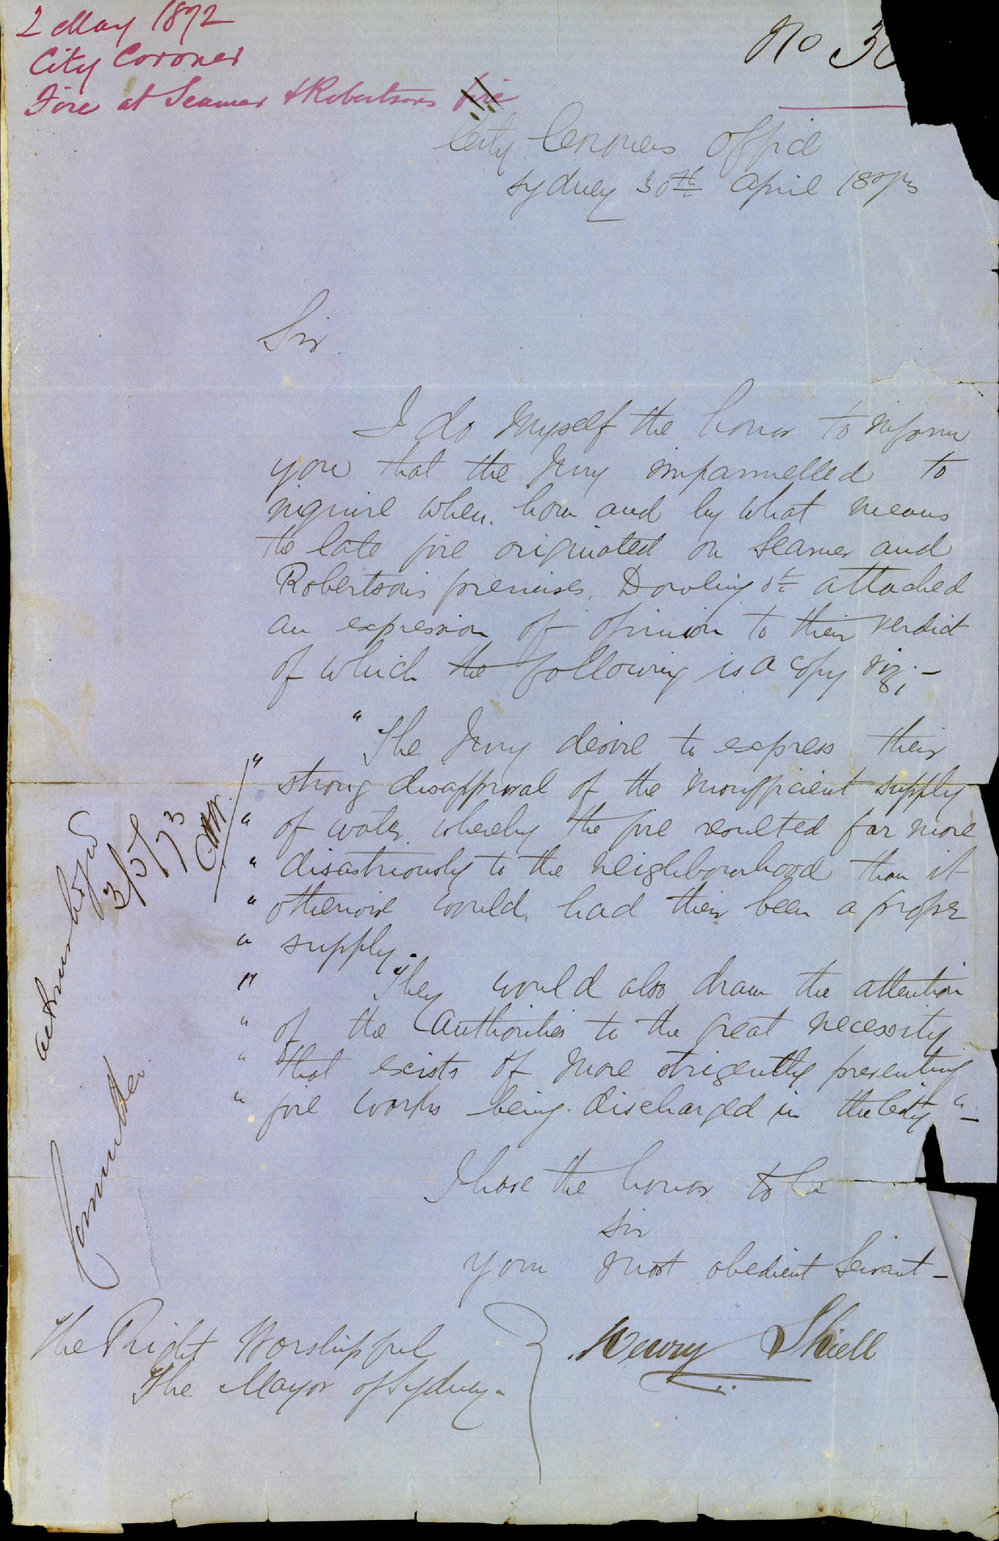 2 May 1872
City Coroner
Fire at Seamer & Robertsons fire
No 30
City Coroners Office
Sydney 30th April 1873
Sir
I do myself the honor to inform
you that the Jury impannelled to
inquire when, how and by what means
the late fire originated on Seamer and
Robertson's premises, Dowling St attached
an expression of opinion to their verdict
of which the following is a copy viz; -
" The Jury desire to express their
" strong disapproval of the insufficient supply
" of water, whereby the fire resulted far more
" disastriously to the neighbourhood than it
" otherwise would, had their been a proper
" supply.
" They would also draw the attention
" of the Authorities to the great necessity
" that exists of more strigently preventing
" fire works being discharged in the City " -
I have the honor to be
Sir
your most obedient Servant -
Henry Shiell
The Right Worshipful
The Mayor of Sydney -
Committee
3/5/73